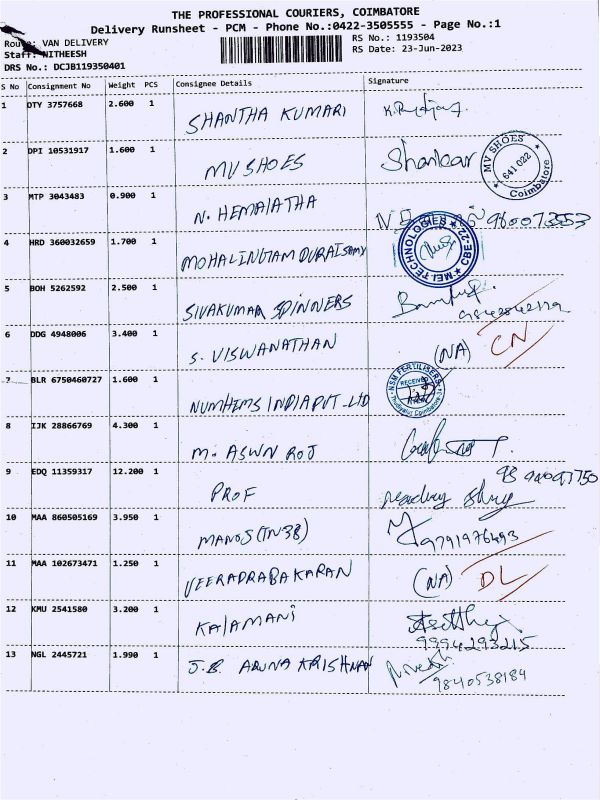 THE PROFESSIONAL COURIERS, COIMBATORE
Delivery Runsheet - PCM - Phone No.:0422-3505555 - Page No.:1
Route: VAN DELIVERY
RS No.: 1193504
Staff: NITHEESH
RS Date: 23-Jun-2023
DRS No.: DCJB119350401
S No Consignment No Weight PCS Consignee Details Signature
1 DTY 3757668 2.600 1 SHANTHA KUMARI
2 DPI 10531917 1.600 1 MV SHOES Shankar
MV SHOES 641 022 Coimbatore
3 MTP 3043483 0.900 1 N. HEMALATHA
4 HRD 360032659 1.700 1 MOHALINGAM DURAISAMY
MEI TECHNOLOGIES CBE-22
5 BOH 5262592 2.500 1 SIVAKUMAR SPINNERS
6 DDG 4948006 3.400 1 S. VISWANATHAN (NA) CN
7 BLR 6750460727 1.600 1 NUMHEMS INDIA PVT-LTD
NSM FERTILISERS RECEIVED Coimbatore
8 IJK 28866769 4.300 1 M. ASWN ROJ
9 EDQ 11359317 12.200 1 PROF
10 MAA 860505169 3.950 1 MANOJ (TN38) 9791976493
11 MAA 102673471 1.250 1 VEERAPRABAKARAN (NA) DL
12 KMU 2541580 3.200 1 KALAMANI
9994293215
13 NGL 2445721 1.990 1 J.B. ARUNA KRISHNAN
9840538184